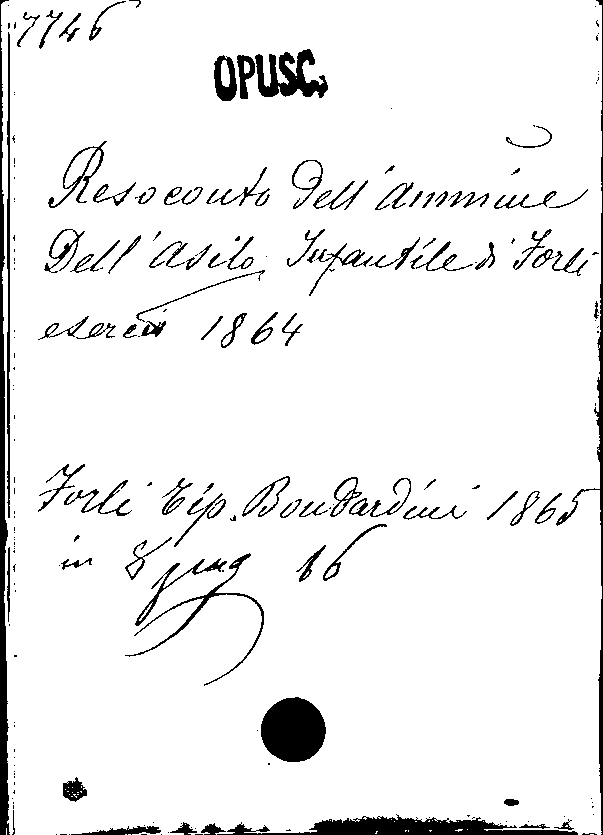 7746
OPUSC.
Resoconto dell'ammine
Dell'asilo Infantile di Forlì
eserciz 1864
Forlì Tip. Bordandini 1865
in 8 pag 16